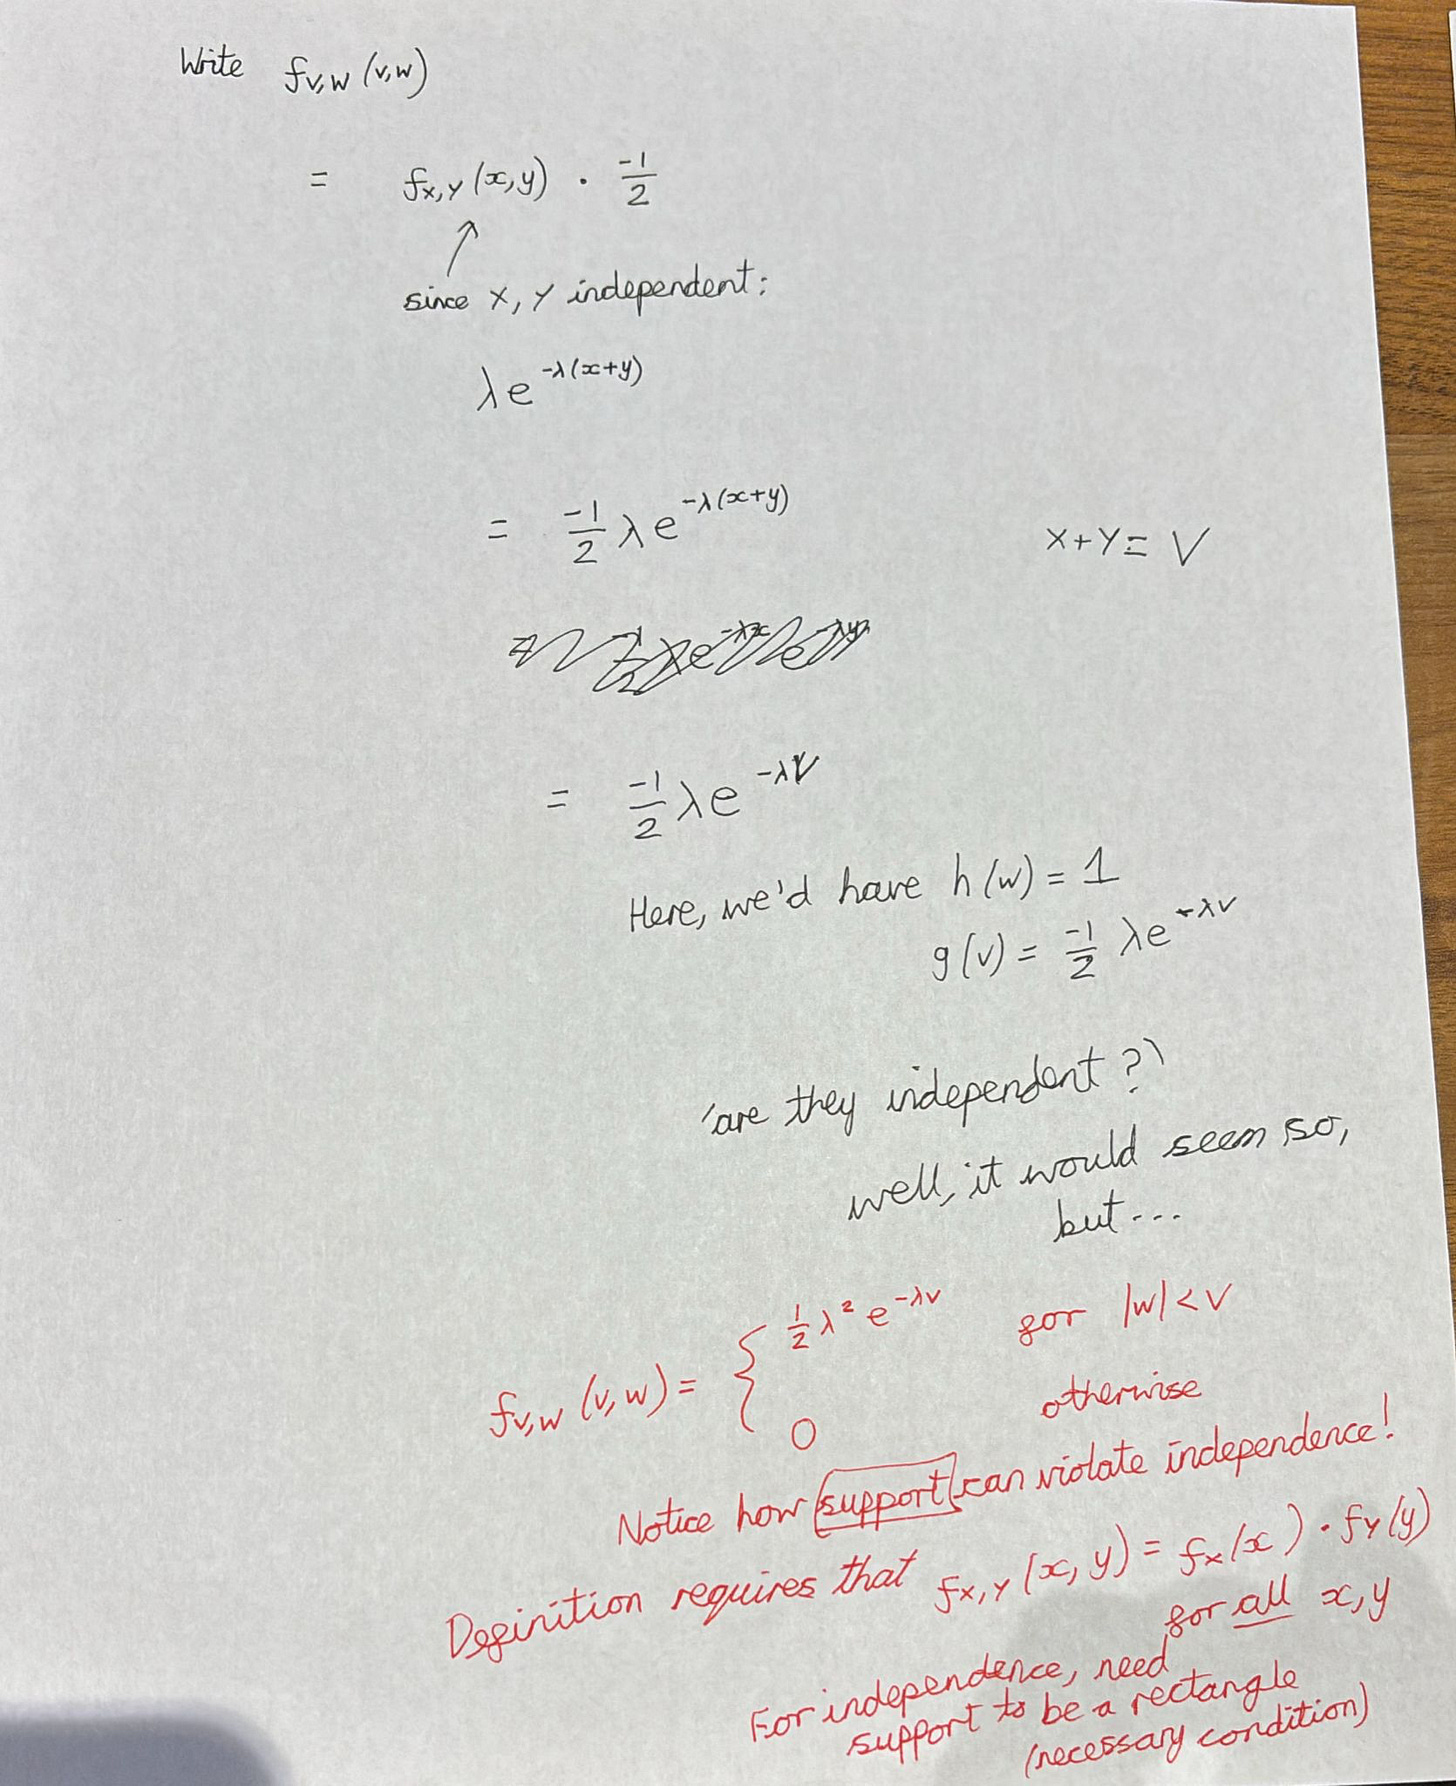 Write f_{V,W}(v,w)
= f_{X,Y}(x,y) · \frac{-1}{2}
↗
since X, Y independent:
λe^{-λ(x+y)}
= \frac{-1}{2} λe^{-λ(x+y)}
X+Y = V
= \frac{-1}{2} λe^{-λV}
Here, we'd have h(w) = 1
g(v) = \frac{-1}{2} λe^{-λv}
'are they independent?'
well, it would seem so,
but...
f_{V,W}(v,w) = { \frac{1}{2} λ² e^{-λv} for |w| < v
0 otherwise
Notice how support can violate independence!
Definition requires that f_{X,Y}(x,y) = f_X(x) · f_Y(y)
for all x,y
For independence, need
support to be a rectangle
(necessary condition)